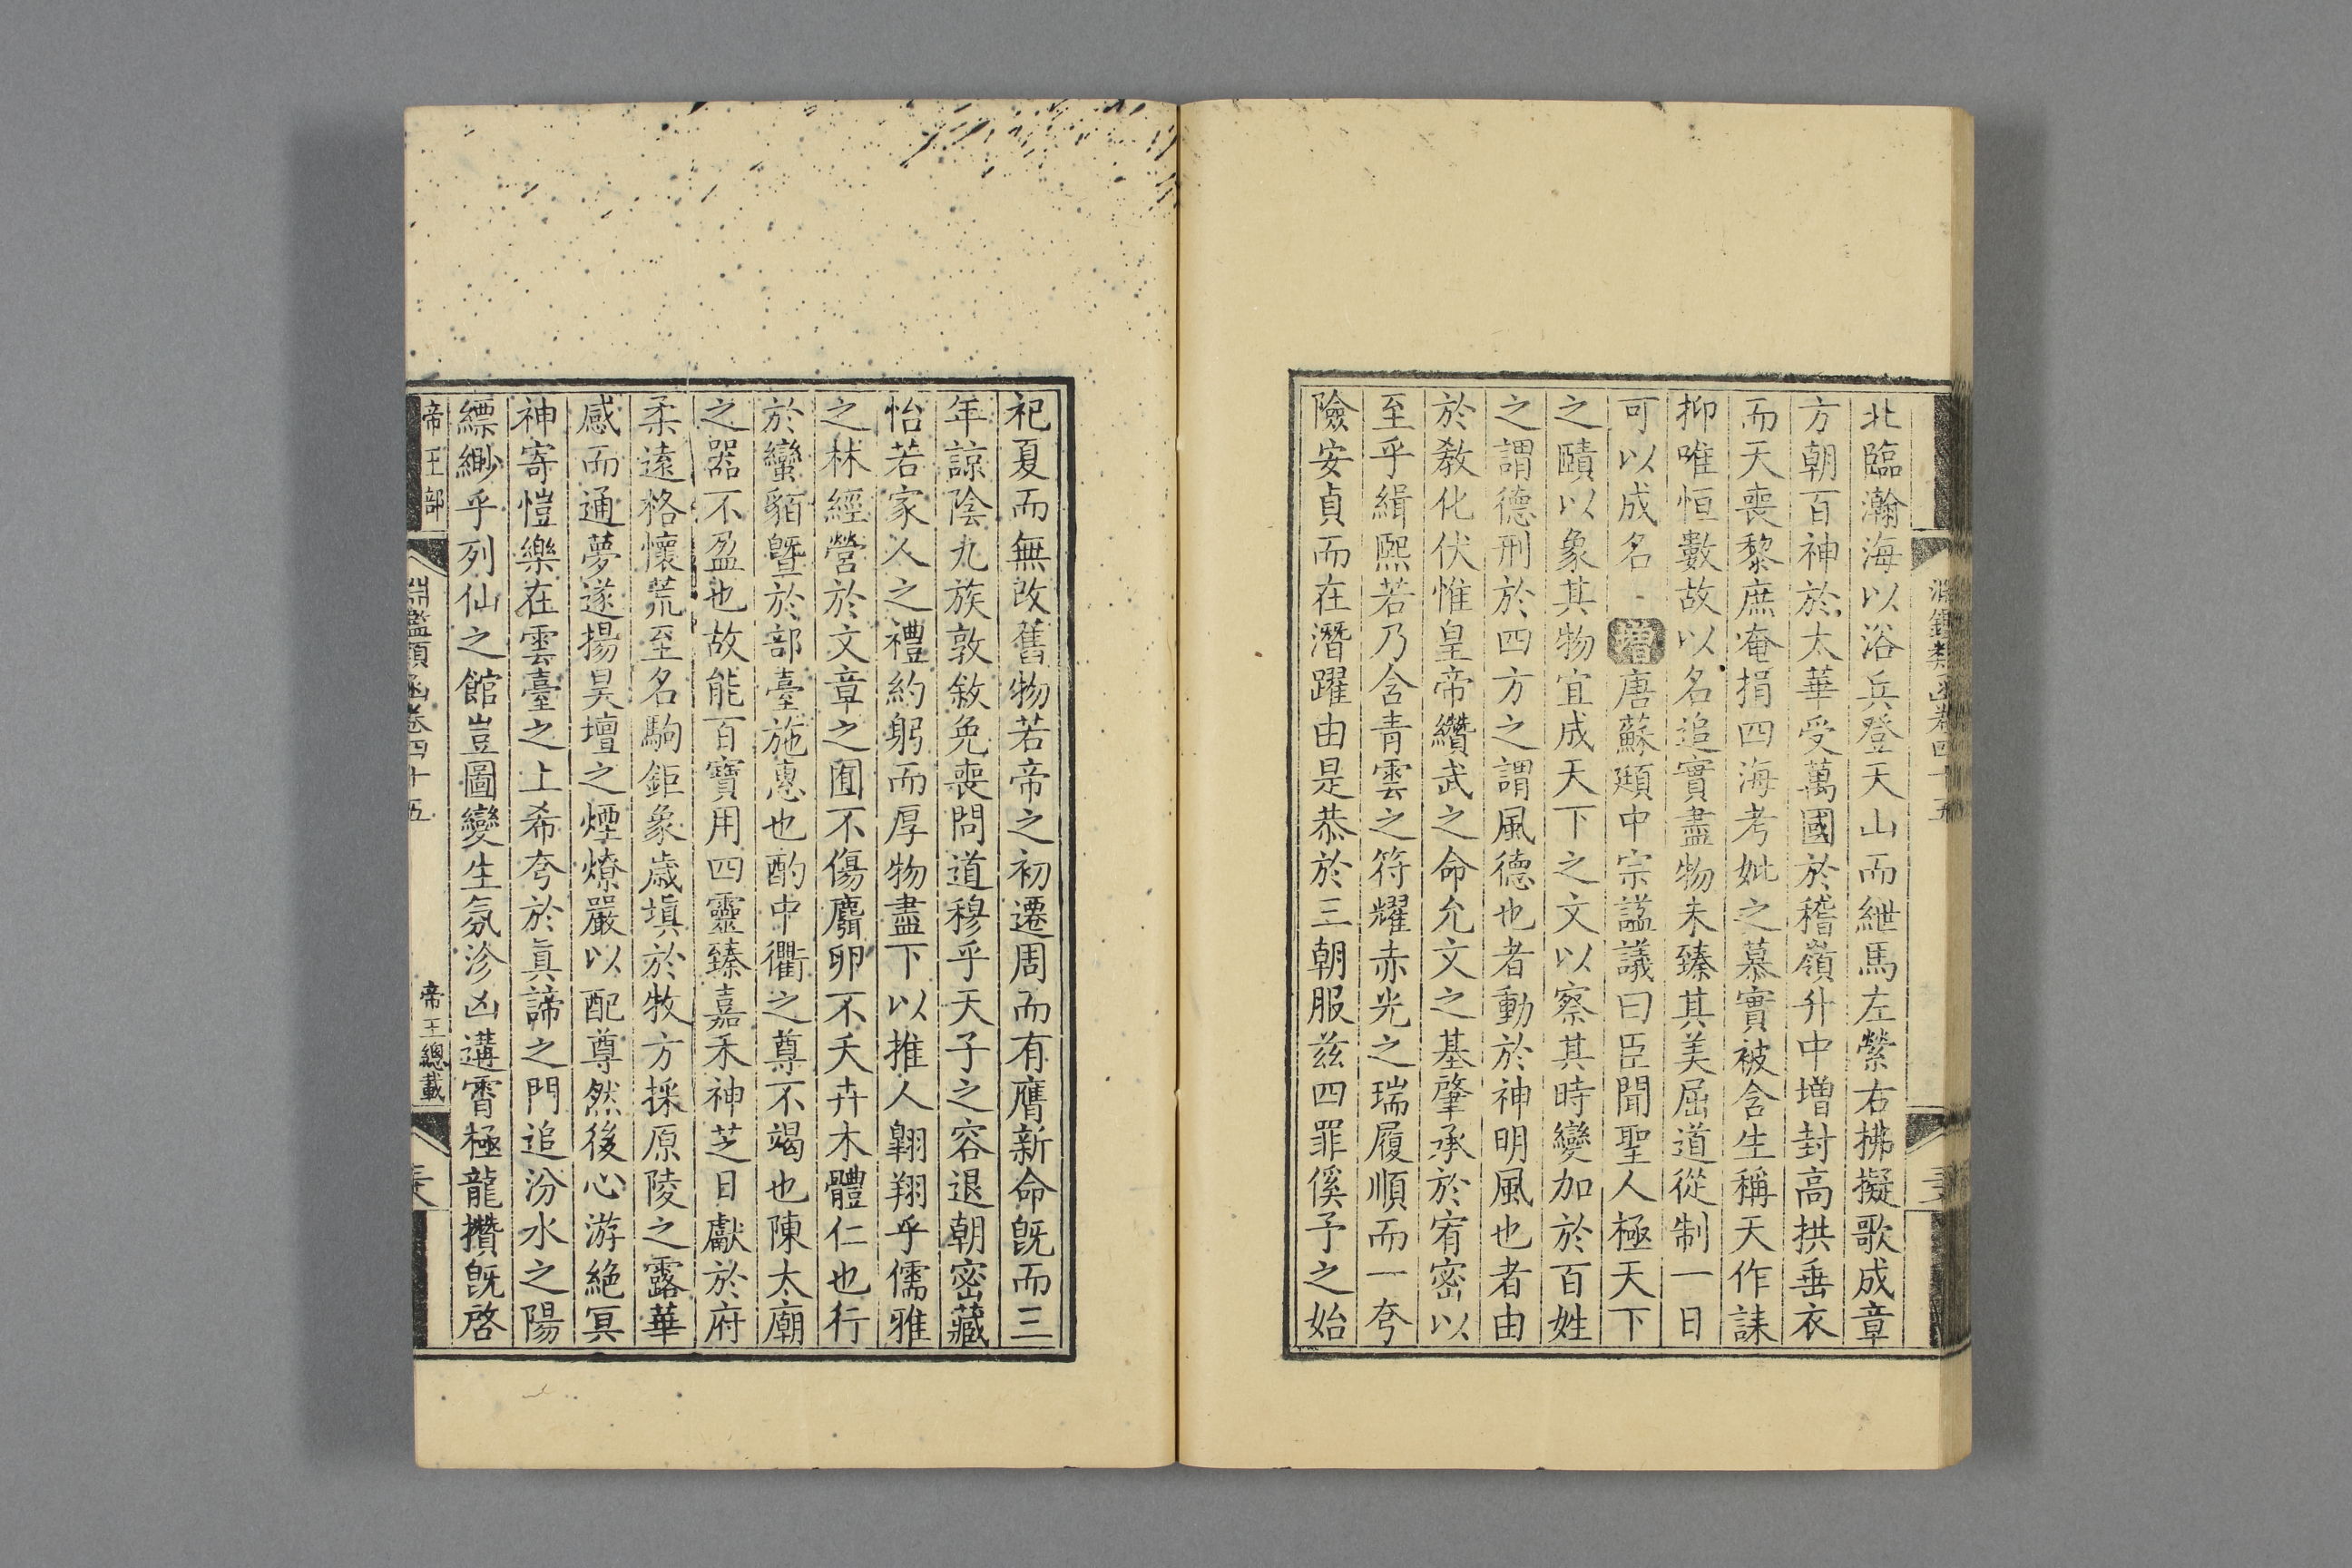 北臨瀚海以浴兵登天山而紲馬左縈右拂擬歌成章
方朝百神於太華受萬國於稽嶺升中增封高拱垂衣
而天喪黎庶奄捐四海考妣之慕實被含生稱天作誄
抑唯恒數故以名追實盡物未臻其美屈道從制一日
可以成名 增唐蘇頲中宗謚議曰臣聞聖人極天下
之賾以象其物宜成天下之文以察其時變加於百姓
之謂德刑於四方之謂風德也者動於神明風也者由
於教化伏惟皇帝纘武之命允文之基肇承於宥密以
至乎緝熙若乃含青雲之符耀赤光之瑞履順而一夸
險安貞而在潛躍由是恭於三朝服茲四罪傒予之始
祀夏而無改舊物若帝之初遷周而有膺新命旣而三
年諒陰九族敦敘免喪問道穆乎天子之容退朝密藏
怡若家人之禮約躬而厚物盡下以推人翱翔乎儒雅
之林經營於文章之囿不傷麛卵不夭卉木體仁也行
於蠻貊曁於部臺施惠也酌中衢之尊不竭也陳太廟
之器不盈也故能百寶用四靈臻嘉禾神芝日獻於府
柔遠格懷荒至名駒鉅象歲塡於牧方採原陵之露華
感而通夢遂揚昊壇之煙燎嚴以配尊然後心游絶冥
神寄愷樂在雲臺之上希夸於眞諦之門追汾水之陽
縹緲乎列仙之館豈圖變生氛沴凶遘霄極龍攢旣啓
帝王部 淵鑑類函卷四十五 帝王總載